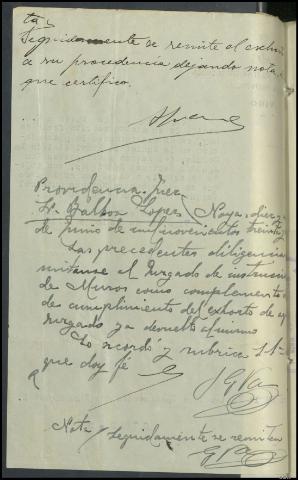 Seguidamente se remite el exhorto
a su procedencia dejando nota,
que certifico.
Providencia Juez
Sr. Balboa Lopez Noya, diez
de Junio de mil novecientos treinta y
Las precedentes diligencias
remitanse al Juzgado de instrucción
de Muros como complemento
de cumplimiento del exhorto de
Juzgado ya devuelto al mismo
Lo acordó y rubrica S.Sª
que doy fé
Nota / Seguidamente se remiten